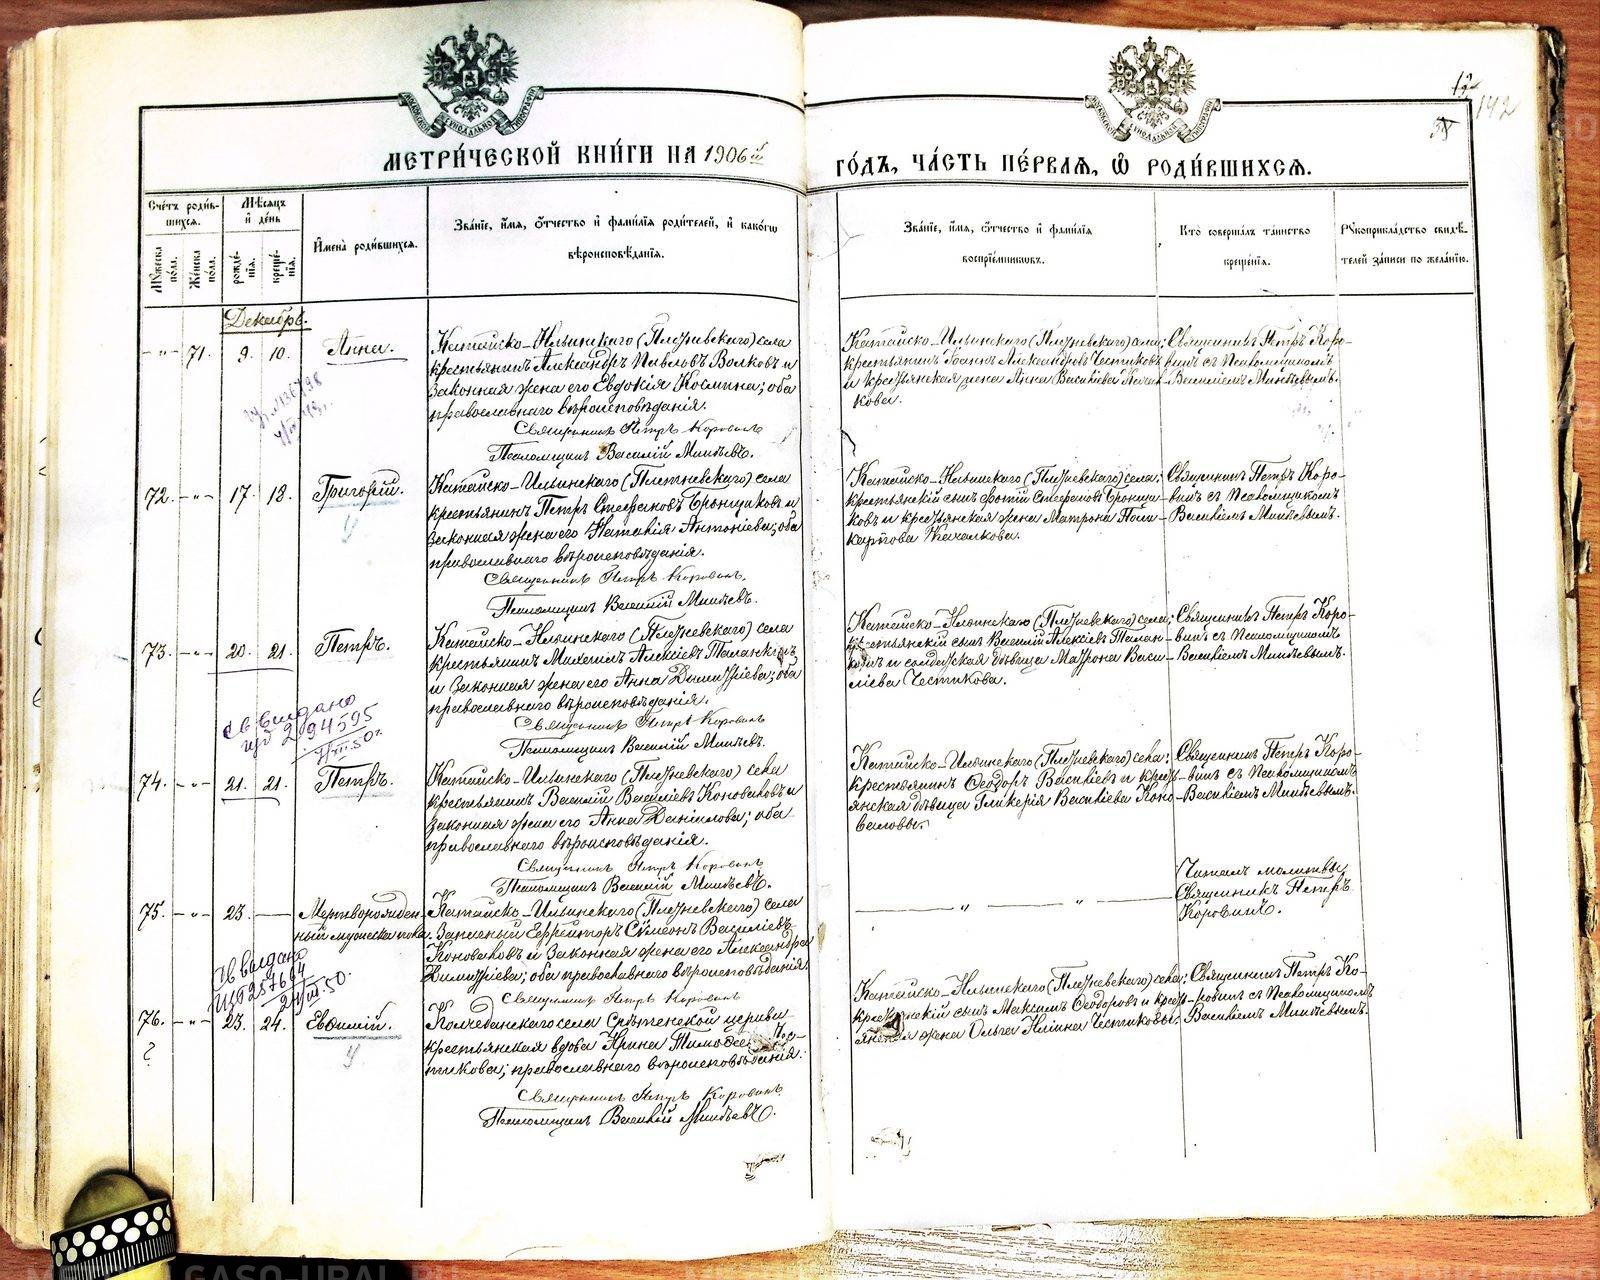 МЕТРИ́ЧЕСКОЙ КНИ́ГИ НА 1906 й
ГО́ДЪ, ЧА́СТЬ ПЕ́РВАЯ, Ѿ РОДИ́ВШИХСЯ.
12
142
Сче́тъ роди́в-
шихся.
Мужеска по́ла.
Же́нска по́ла.
Мѣ́сяцъ
и де́нь
рожде́-
нїя.
креще́-
нїя.
И҆мена̀ роди́вшихся.
Зва́нїе, и҆́мя, ѻ҆́тчество и҆ фами́лїя роди́телей, и҆ како́гѡ
вѣроисповѣ́данїя.
Зва́нїе, и҆́мя, ѻ҆́тчество и҆ фами́лїя
воспрїе́мникѡвъ.
Кто̀ соверша́лъ та́инство
креще́нїя.
Рꙋкоприкла́дство свидѣ́-
телей за́писи по жела́нїю.
Декабрь.
- " - 71. 9. 10. Анна.
Катайско-Ильинскаго (Плетневскаго) села
крестьянинъ Александръ Павловъ Волковъ и
законная жена его Евдокія Космина; оба
православнаго вѣроисповѣданія.
Священникъ Петръ Коровинъ
Псаломщикъ Василій Минѣевъ.
Катайско-Ильинскаго (Плетневскаго) села:
крестьянинъ Іоаннъ Александровъ Честиковъ
и крестьянская жена Анна Васильева Качал-
кова.
Священникъ Петръ Коро-
винъ съ Псаломщикомъ
Василіемъ Минѣевымъ.
72. - " - 17. 18. Григорій.
Катайско-Ильинскаго (Плетневскаго) села
крестьянинъ Петръ Стефановъ Бронниковъ и
законная жена его Наталія Антоніева; оба
православнаго вѣроисповѣданія.
Священникъ Петръ Коровинъ.
Псаломщикъ Василій Минѣевъ.
Катайско-Ильинскаго (Плетневскаго) села:
крестьянскій сынъ Фотій Стефановъ Бронни-
ковъ и крестьянская жена Матрона Поли-
карпова Качалкова.
Священникъ Петръ Коро-
винъ съ Псаломщикомъ
Василіемъ Минѣевымъ.
73. - " - 20. 21. Петръ.
Катайско-Ильинскаго (Плетневскаго) села
крестьянинъ Михаилъ Алексіевъ Таланкинъ
и законная жена его Анна Димитріева; оба
православнаго вѣроисповѣданія.
Священникъ Петръ Коровинъ
Псаломщикъ Василій Минѣевъ.
Катайско-Ильинскаго (Плетневскаго) села;
крестьянскій сынъ Василій Алексіевъ Талан-
кинъ и солдатская дѣвица Матрона Васи-
ліева Честикова.
Священникъ Петръ Коро-
винъ съ Псаломщикомъ
Василіемъ Минѣевымъ.
св выдано
2894595
74. - " - 21. 21. Петръ.
Катайско-Ильинскаго (Плетневскаго) села
крестьянинъ Василій Василіевъ Коноваловъ и
законная жена его Анна Даніилова; оба
православнаго вѣроисповѣданія.
Священникъ Петръ Коровинъ
Псаломщикъ Василій Минѣевъ.
Катайско-Ильинскаго (Плетневскаго) села:
крестьянинъ Ѳеодоръ Василіевъ и кресть-
янская дѣвица Гликерія Василіева Коно-
валовы.
Священникъ Петръ Коро-
винъ съ Псаломщикомъ
Василіемъ Минѣевымъ.
75. - " - 23. — Мертворожден-
ный мужеска пола.
Катайско-Ильинскаго (Плетневскаго) села
Запасный Ефрейторъ Сѵмеонъ Василіевъ
Коноваловъ и законная жена его Александра
Димитріева; оба православнаго вѣроисповѣданія.
Священникъ Петръ Коровинъ
— " — " —
Читалъ молитвы
Священникъ Петръ
Коровинъ.
св выдано
76. - " - 23. 24. Евѳимій.
?
Колчеданскаго села Срѣтенской церкви
крестьянская вдова Ирина Тимоѳеева Чес-
тикова; православнаго вѣроисповѣданія.
Священникъ Петръ Коровинъ
Псаломщикъ Василій Минѣевъ.
Катайско-Ильинскаго (Плетневскаго) села;
крестьянскій сынъ Максимъ Ѳеодоровъ и кресть-
янская жена Ольга Ильина Честиковы.
Священникъ Петръ Ко-
ровинъ съ Псаломщикомъ
Василіемъ Минѣевымъ.